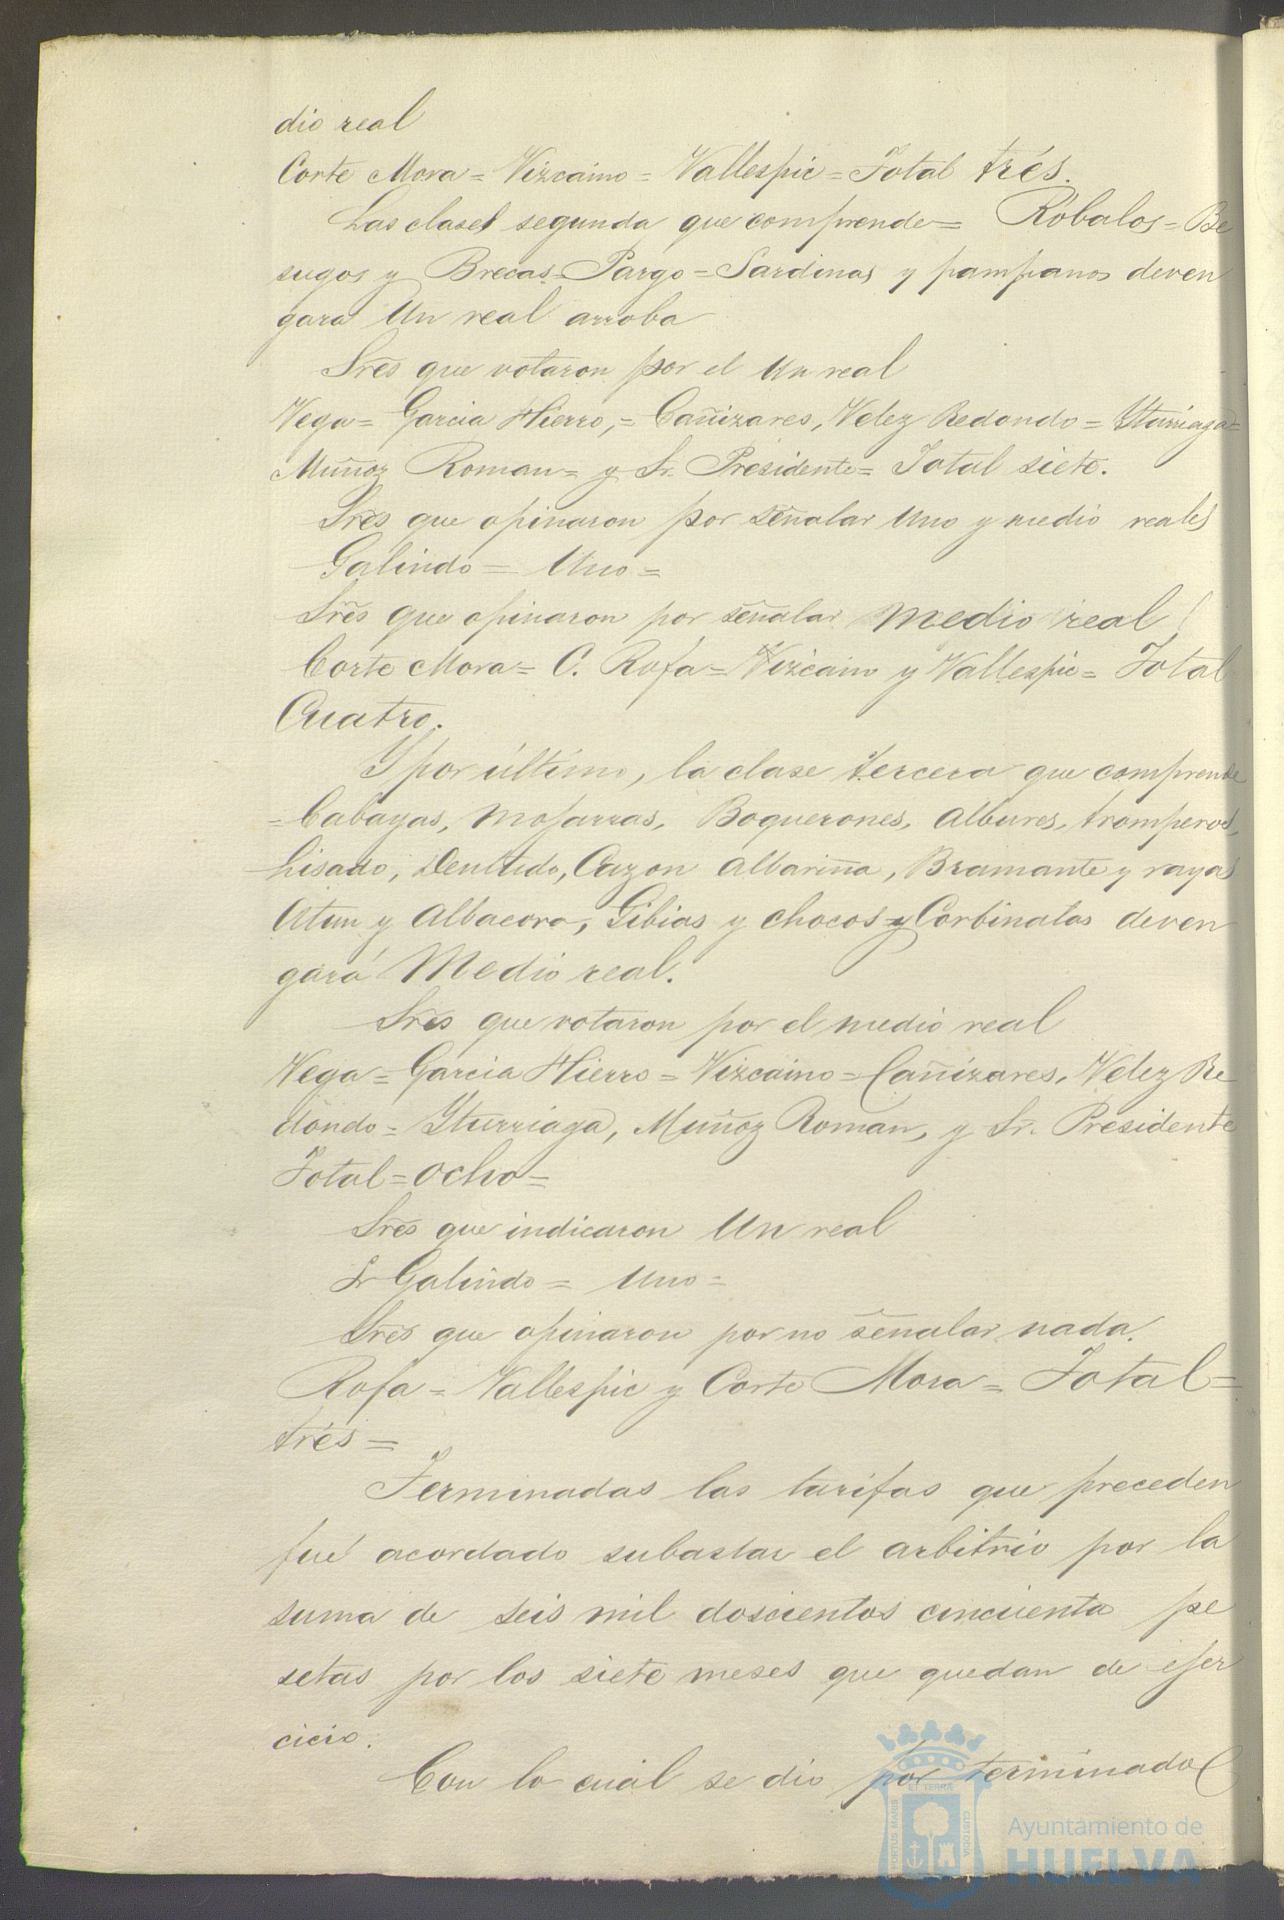 dio real
Corte Mora = Vizcaino = Vallespic = Total trés.
Las clases segunda que comprende = Róbalos = Be
sugos y Brecas = Pargo = Sardinas y pampanos deven
gara Un real arroba
Sres que votaron por el Un real
Vega = Garcia Hierro, = Cañizares, Velez Redondo = Yturriaga =
Muñoz Roman = y Sr. Presidente = Total siete.
Sres que opinaron por señalar Uno y medio reales
Galindo = Uno =
Sres que opinaron por señalar Medio real
Corte Mora = C. Rofa = Vizcaino y Vallespic = Total
Cuatro.
Y por último, la clase tercera que comprende
= Cabayas, Mojarras, Boquerones, Albures, tromperos,
Lisado, Dentudo, Cazon Albariña, Bramante y rayas
Atun y Albacora, Gibias y chocos y Corbinatas deven
gará Medio real.
Sres que votaron por el medio real
Vega = Garcia Hierro = Vizcaino = Cañizares, Velez Re
dondo = Yturriaga, Muñoz Roman, y Sr. Presidente
Total = ocho =
Sres que indicaron Un real
Sr Galindo = Uno =
Sres que opinaron por no señalar nada.
Rofa = Vallespic y Corte Mora = Total =
trés =
Terminadas las tarifas que preceden
fué acordado subastar el arbitrio por la
suma de seis mil doscientos cincuenta pe
setas por los siete meses que quedan de ejer
cicio.
Con lo cual se dio por terminado
ET TERRÆ
PORTUS MARIS
CUSTODIA
Ayuntamiento de
HUELVA